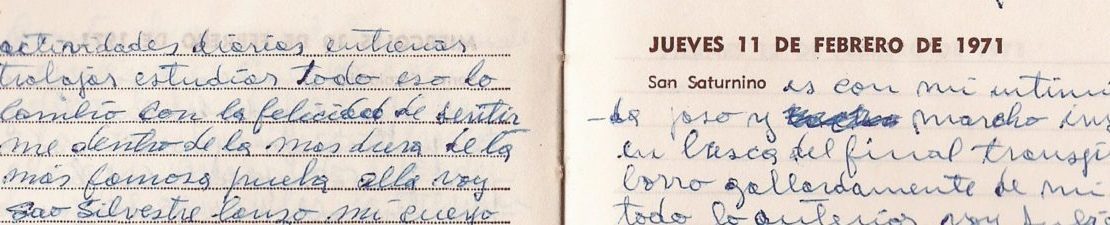 actividades diarias entrenar
trabajar estudiar todo eso lo
cambio con la felicidad de sentir
me dentro de la mas dura de la
más famosa prueba alla voy
Sao Silvestre lanzo mi cuerpo
JUEVES 11 DE FEBRERO DE 1971
San Saturnino es con mi intimi
-da paso y marcho
en busca del final
borro gallardamente de mi
todo lo anterior voy